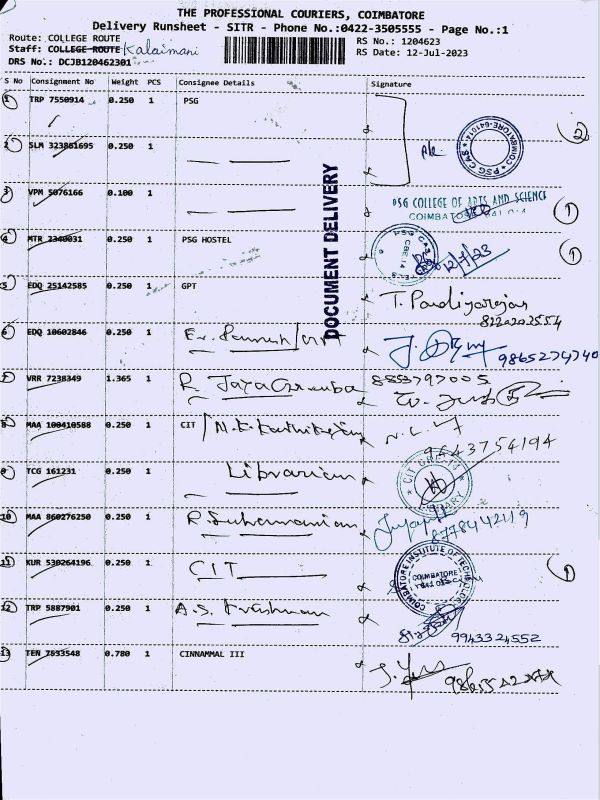 THE PROFESSIONAL COURIERS, COIMBATORE
Delivery Runsheet - SITR - Phone No.:0422-3505555 - Page No.:1
Route: COLLEGE ROUTE
RS No.: 1204623
Staff: COLLEGE ROUTE Kalaimani
RS Date: 12-Jul-2023
DRS No.: DCJB120462301
S No Consignment No Weight PCS Consignee Details Signature
1 TRP 7550914 0.250 1 PSG
2
2 SLM 323861695 0.250 1
PSG CAS
3 VPM 5076166 0.100 1
PSG COLLEGE OF ARTS AND SCIENCE
1
4 MTR 2340031 0.250 1 PSG HOSTEL
12/7/23
1
DOCUMENT DELIVERY
5 EDQ 25142585 0.250 1 GPT
T. Pandiyarajan
6 EDQ 10602846 0.250 1
9865274740
7 VRR 7238349 1.365 1
8 MAA 100410588 0.250 1 CIT
9443754194
9 TCG 161231 0.250 1 Librarian
CIT LIBRARY
10 MAA 860276250 0.250 1 R. Subramanian
8778442119
11 KUR 530264196 0.250 1 CIT
COIMBATORE INSTITUTE OF TECHNOLOGY
COIMBATORE
1
12 TRP 5887901 0.250 1 A.S. Krishnan
9943324552
13 TEN 7533548 0.780 1 CINNAMMAL III